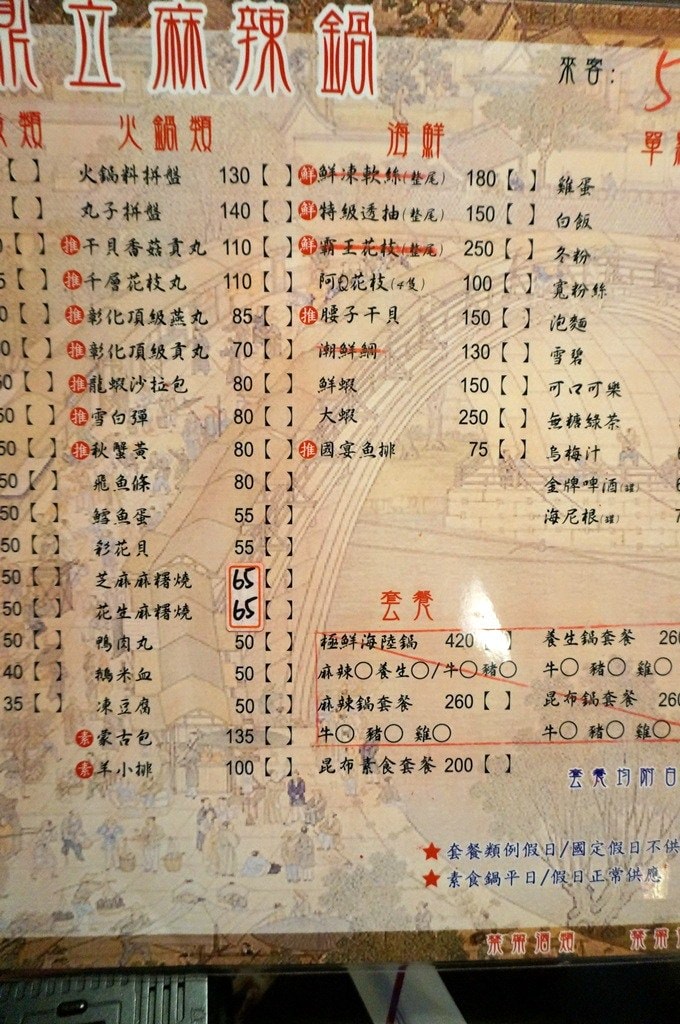 鼎立麻辣鍋
來客: 5
類
【 】
【 】
【 】
【 】
0【 】
0【 】
50【 】
50【 】
50【 】
50【 】
50【 】
50【 】
50【 】
50【 】
50【 】
40【 】
35【 】
火鍋類
火鍋料拼盤 130【 】
丸子拼盤 140【 】
推 干貝香菇貢丸 110【 】
推 千層花枝丸 110【 】
推 彰化頂級燕丸 85【 】
推 彰化頂級貢丸 70【 】
推 龍蝦沙拉包 80【 】
推 雪白彈 80【 】
推 秋蟹黃 80【 】
飛魚條 80【 】
鱈魚蛋 55【 】
彩花貝 55【 】
芝麻麻糬燒 65【 】
花生麻糬燒 65【 】
鴨肉丸 50【 】
鵝米血 50【 】
凍豆腐 50【 】
素 蒙古包 135【 】
素 羊小排 100【 】
海鮮
鮮 鮮凍軟絲(整尾) 180【 】
鮮 特級透抽(整尾) 150【 】
鮮 霸王花枝(整尾) 250【 】
阿Q花枝(4隻) 100【 】
推 腰子干貝 150【 】
潮鮮鯛 130【 】
鮮蝦 150【 】
大蝦 250【 】
推 國宴魚排 75【 】
單
雞蛋
白飯
冬粉
寬粉絲
泡麵
雪碧
可口可樂
無糖綠茶
烏梅汁
金牌啤酒(罐)
海尼根(罐)
套餐
極鮮海陸鍋 420【 】
麻辣○養生○/牛○豬○
麻辣鍋套餐 260【 】
牛○ 豬○ 雞○
昆布素食套餐 200【 】
養生鍋套餐 260
牛○ 豬○ 雞○
昆布鍋套餐 260
牛○ 豬○ 雞○
套餐均附白
★ 套餐類例假日/國定假日不供
★ 素食鍋平日/假日正常供應